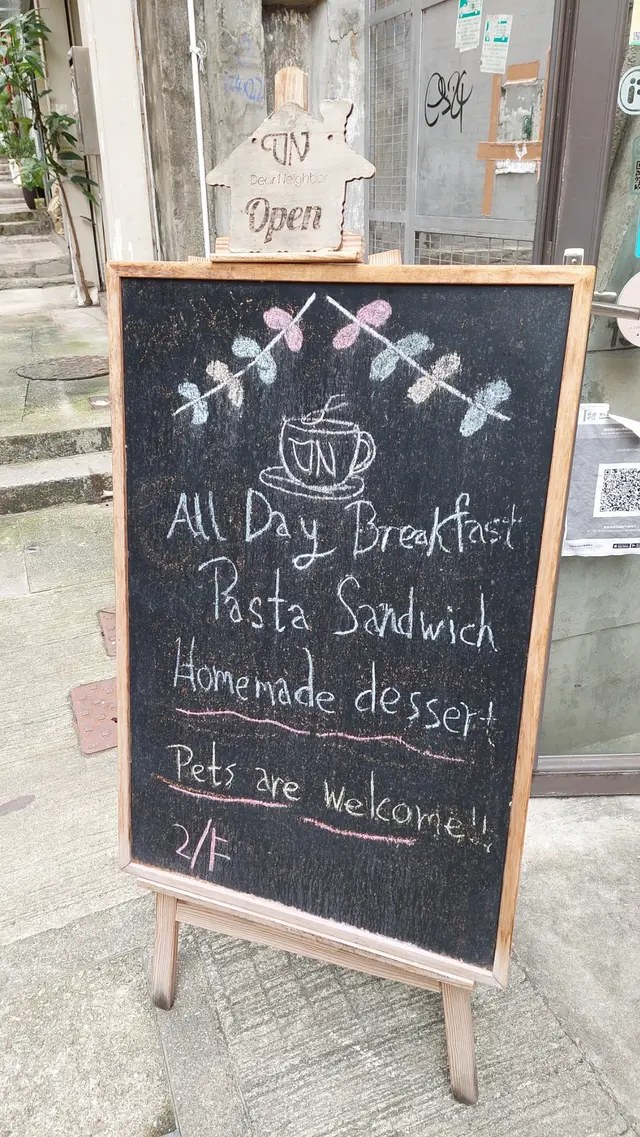 DN
Dear Neighbor
Open
DN
All Day Breakfast
Pasta Sandwich
Homemade dessert
Pets are welcome!!
2/F